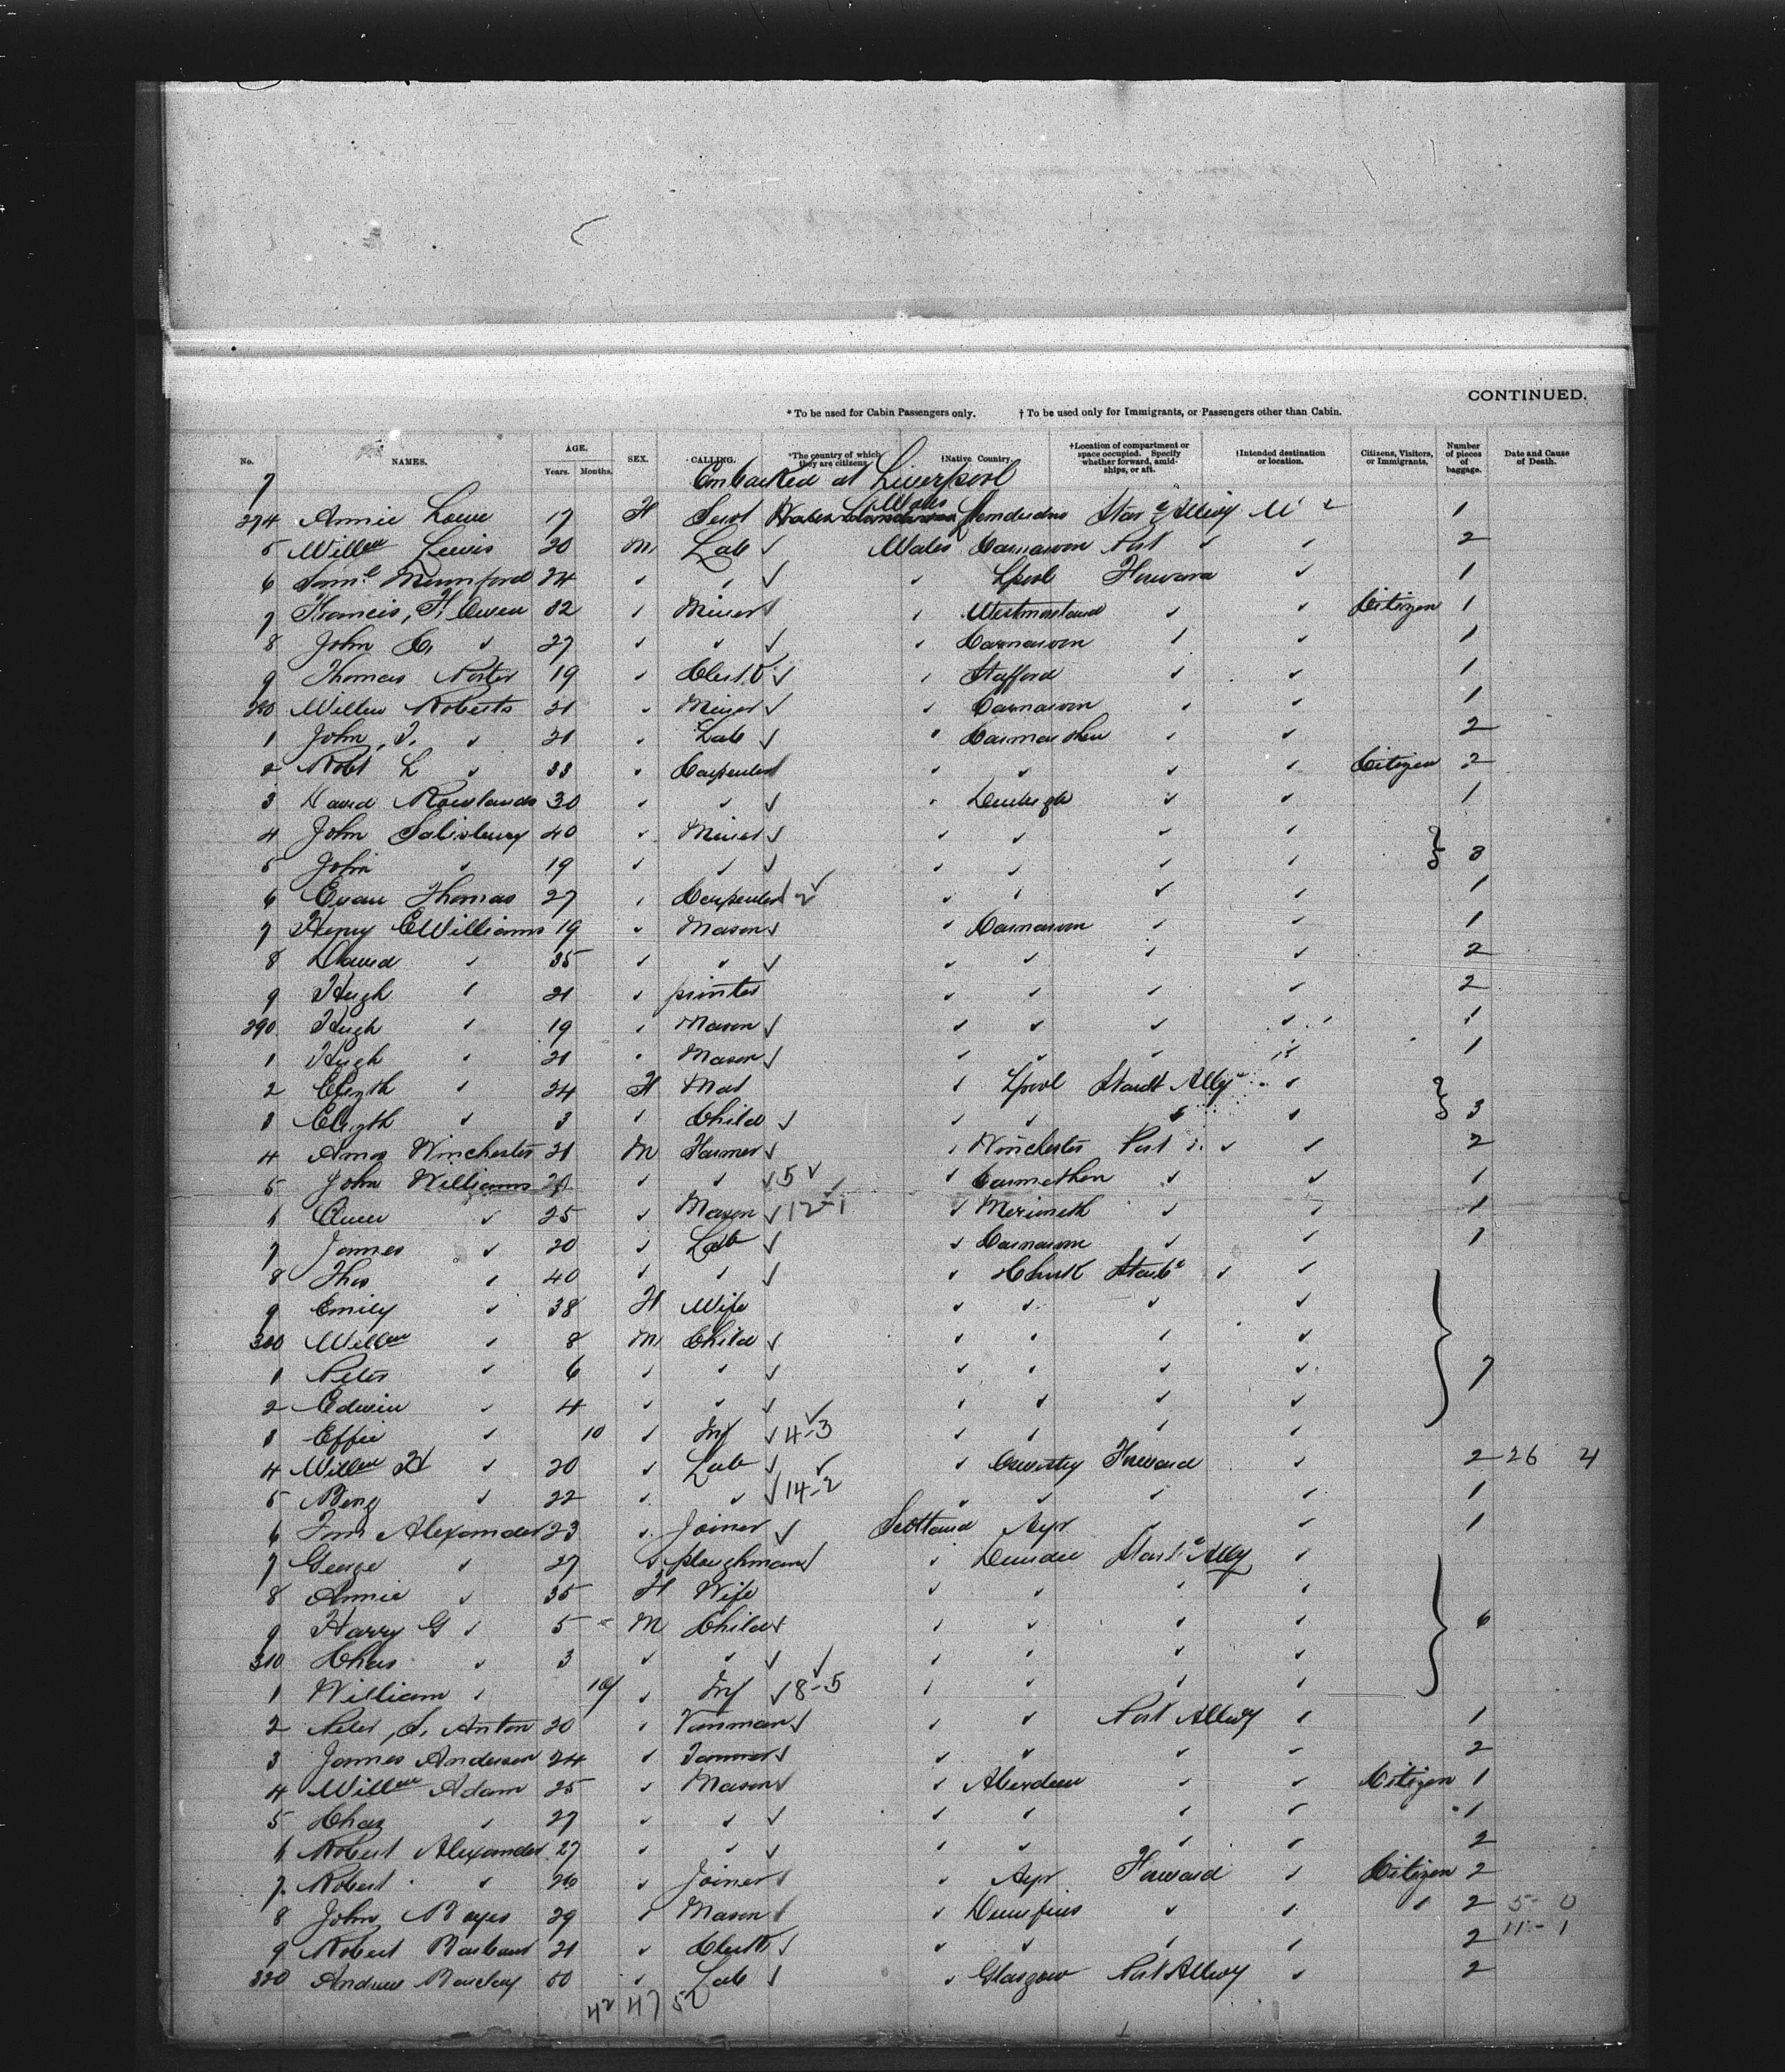 CONTINUED.
* To be used for Cabin Passengers only. † To be used only for Immigrants, or Passengers other than Cabin.
No. NAMES. AGE. Years. Months. SEX. CALLING. *The country of which they are citizens. †Native Country. †Location of compartment or space occupied. Specify whether forward, amidships, or aft. †Intended destination or location. Citizens, Visitors, or Immigrants. Number of pieces of baggage. Date and Cause of Death.
7 Embarked at Liverpool
274 Annie Lowe 17 F Servt Wales Starbd Allwy 1
5 Willm Lewis 20 M Lab ✓ Wales Carnarvon Port ✓ ✓ 2
6 Saml Mumford 24 ✓ ✓ ✓ ✓ Lpool Forward ✓ 1
7 Francis, H. Owen 32 ✓ Miner ✓ ✓ Westmorland ✓ ✓ Citizen 1
8 John C. ✓ 27 ✓ ✓ ✓ ✓ Carnarvon ✓ ✓ 1
9 Thomas Porter 19 ✓ Clerk ✓ ✓ Stafford ✓ ✓ 1
280 Willm Roberts 21 ✓ Miner ✓ ✓ Carnarvon ✓ ✓ 1
1 John, T. ✓ 21 ✓ Lab ✓ ✓ Carmarthen ✓ ✓ 2
2 Robt L ✓ 33 ✓ Carpenter ✓ ✓ ✓ ✓ Citizen 2
3 David Rowlands 30 ✓ ✓ ✓ ✓ Denbigh ✓ ✓ 1
4 John Salisbury 40 ✓ Miner ✓ ✓ ✓ ✓ ✓
5 John ✓ 19 ✓ ✓ ✓ ✓ ✓ ✓ ✓ } 3
6 Evan Thomas 27 ✓ Carpenter 2 ✓ ✓ ✓ ✓ ✓ 1
7 Henry E Williams 19 ✓ Mason ✓ ✓ Carnarvon ✓ ✓ 1
8 David ✓ 35 ✓ ✓ ✓ ✓ ✓ ✓ ✓ 2
9 Hugh ✓ 21 ✓ printer ✓ ✓ ✓ ✓ 2
290 Hugh ✓ 19 ✓ Mason ✓ ✓ ✓ ✓ ✓ 1
1 Hugh ✓ 21 ✓ Mason ✓ ✓ ✓ ✓ ✓ 1
2 Elizth ✓ 24 F Mat ✓ Lpool Starbd Allwy ✓
3 Elizth ✓ 3 ✓ Child ✓ ✓ ✓ ✓ ✓ } 3
4 Amos Winchester 21 M Farmer ✓ ✓ Winchester Port ✓ ✓ 2
5 John Williams 21 ✓ ✓ ✓ 5 ✓ ✓ Carmathen ✓ ✓ 1
6 Owen ✓ 25 ✓ Mason ✓ 12-1 ✓ Merioneth ✓ ✓ 1
7 James ✓ 20 ✓ Lab ✓ ✓ Carnarvon ✓ ✓ 1
8 Thos ✓ 40 ✓ ✓ ✓ ✓ Chirk Starbd ✓ ✓
9 Emily ✓ 38 F Wife ✓ ✓ ✓ ✓
300 Willm ✓ 8 M Child ✓ ✓ ✓ ✓ ✓
1 Peter ✓ 6 ✓ ✓ ✓ ✓ ✓ ✓ ✓ } 7
2 Edwin ✓ 4 ✓ ✓ ✓ ✓ ✓ ✓ ✓
3 Effie ✓ 10 ✓ Inf ✓ 4-3 ✓ ✓ ✓ ✓
4 Willm H ✓ 20 ✓ Lab ✓ ✓ ✓ Oswestry Forward ✓ 2 26 4
5 Benj ✓ 22 ✓ ✓ ✓ 14-2 ✓ ✓ ✓ ✓ 1
6 Alexander 23 ✓ Joiner ✓ Scotland Ayr ✓ ✓ 1
7 George ✓ 27 ✓ ploughman ✓ ✓ Dundee Starbd Allwy ✓
8 Annie ✓ 35 F Wife ✓ ✓ ✓ ✓
9 Harry G ✓ 5 M Child ✓ ✓ ✓ ✓ ✓ } 6
310 Chas ✓ 3 ✓ ✓ ✓ ✓ ✓ ✓ ✓ ✓
1 William ✓ 10 ✓ Inf ✓ 8-5 ✓ ✓ ✓ ✓
2 Peter, S. Anton 20 ✓ Vanman ✓ ✓ ✓ Port Allwy ✓ 1
3 James Anderson 24 ✓ Tanner ✓ ✓ ✓ ✓ ✓ 2
4 Willm Adam 25 ✓ Mason ✓ ✓ Aberdeen ✓ ✓ Citizen 1
5 Chas ✓ 27 ✓ ✓ ✓ ✓ ✓ ✓ ✓ 1
6 Robert Alexander 27 ✓ ✓ ✓ ✓ ✓ ✓ ✓ 2
7 Robert ✓ 26 ✓ Joiner ✓ ✓ Ayr Forward ✓ Citizen 2
8 John Bayes 29 ✓ Mason ✓ ✓ Dumfries ✓ ✓ ✓ 2 5- 0
9 Robert Barbour 21 ✓ Clerk ✓ ✓ ✓ ✓ ✓ 2 11- 1
320 Andrew Barclay 50 ✓ Lab ✓ ✓ Glasgow Port Allwy ✓ 2
42 47 52